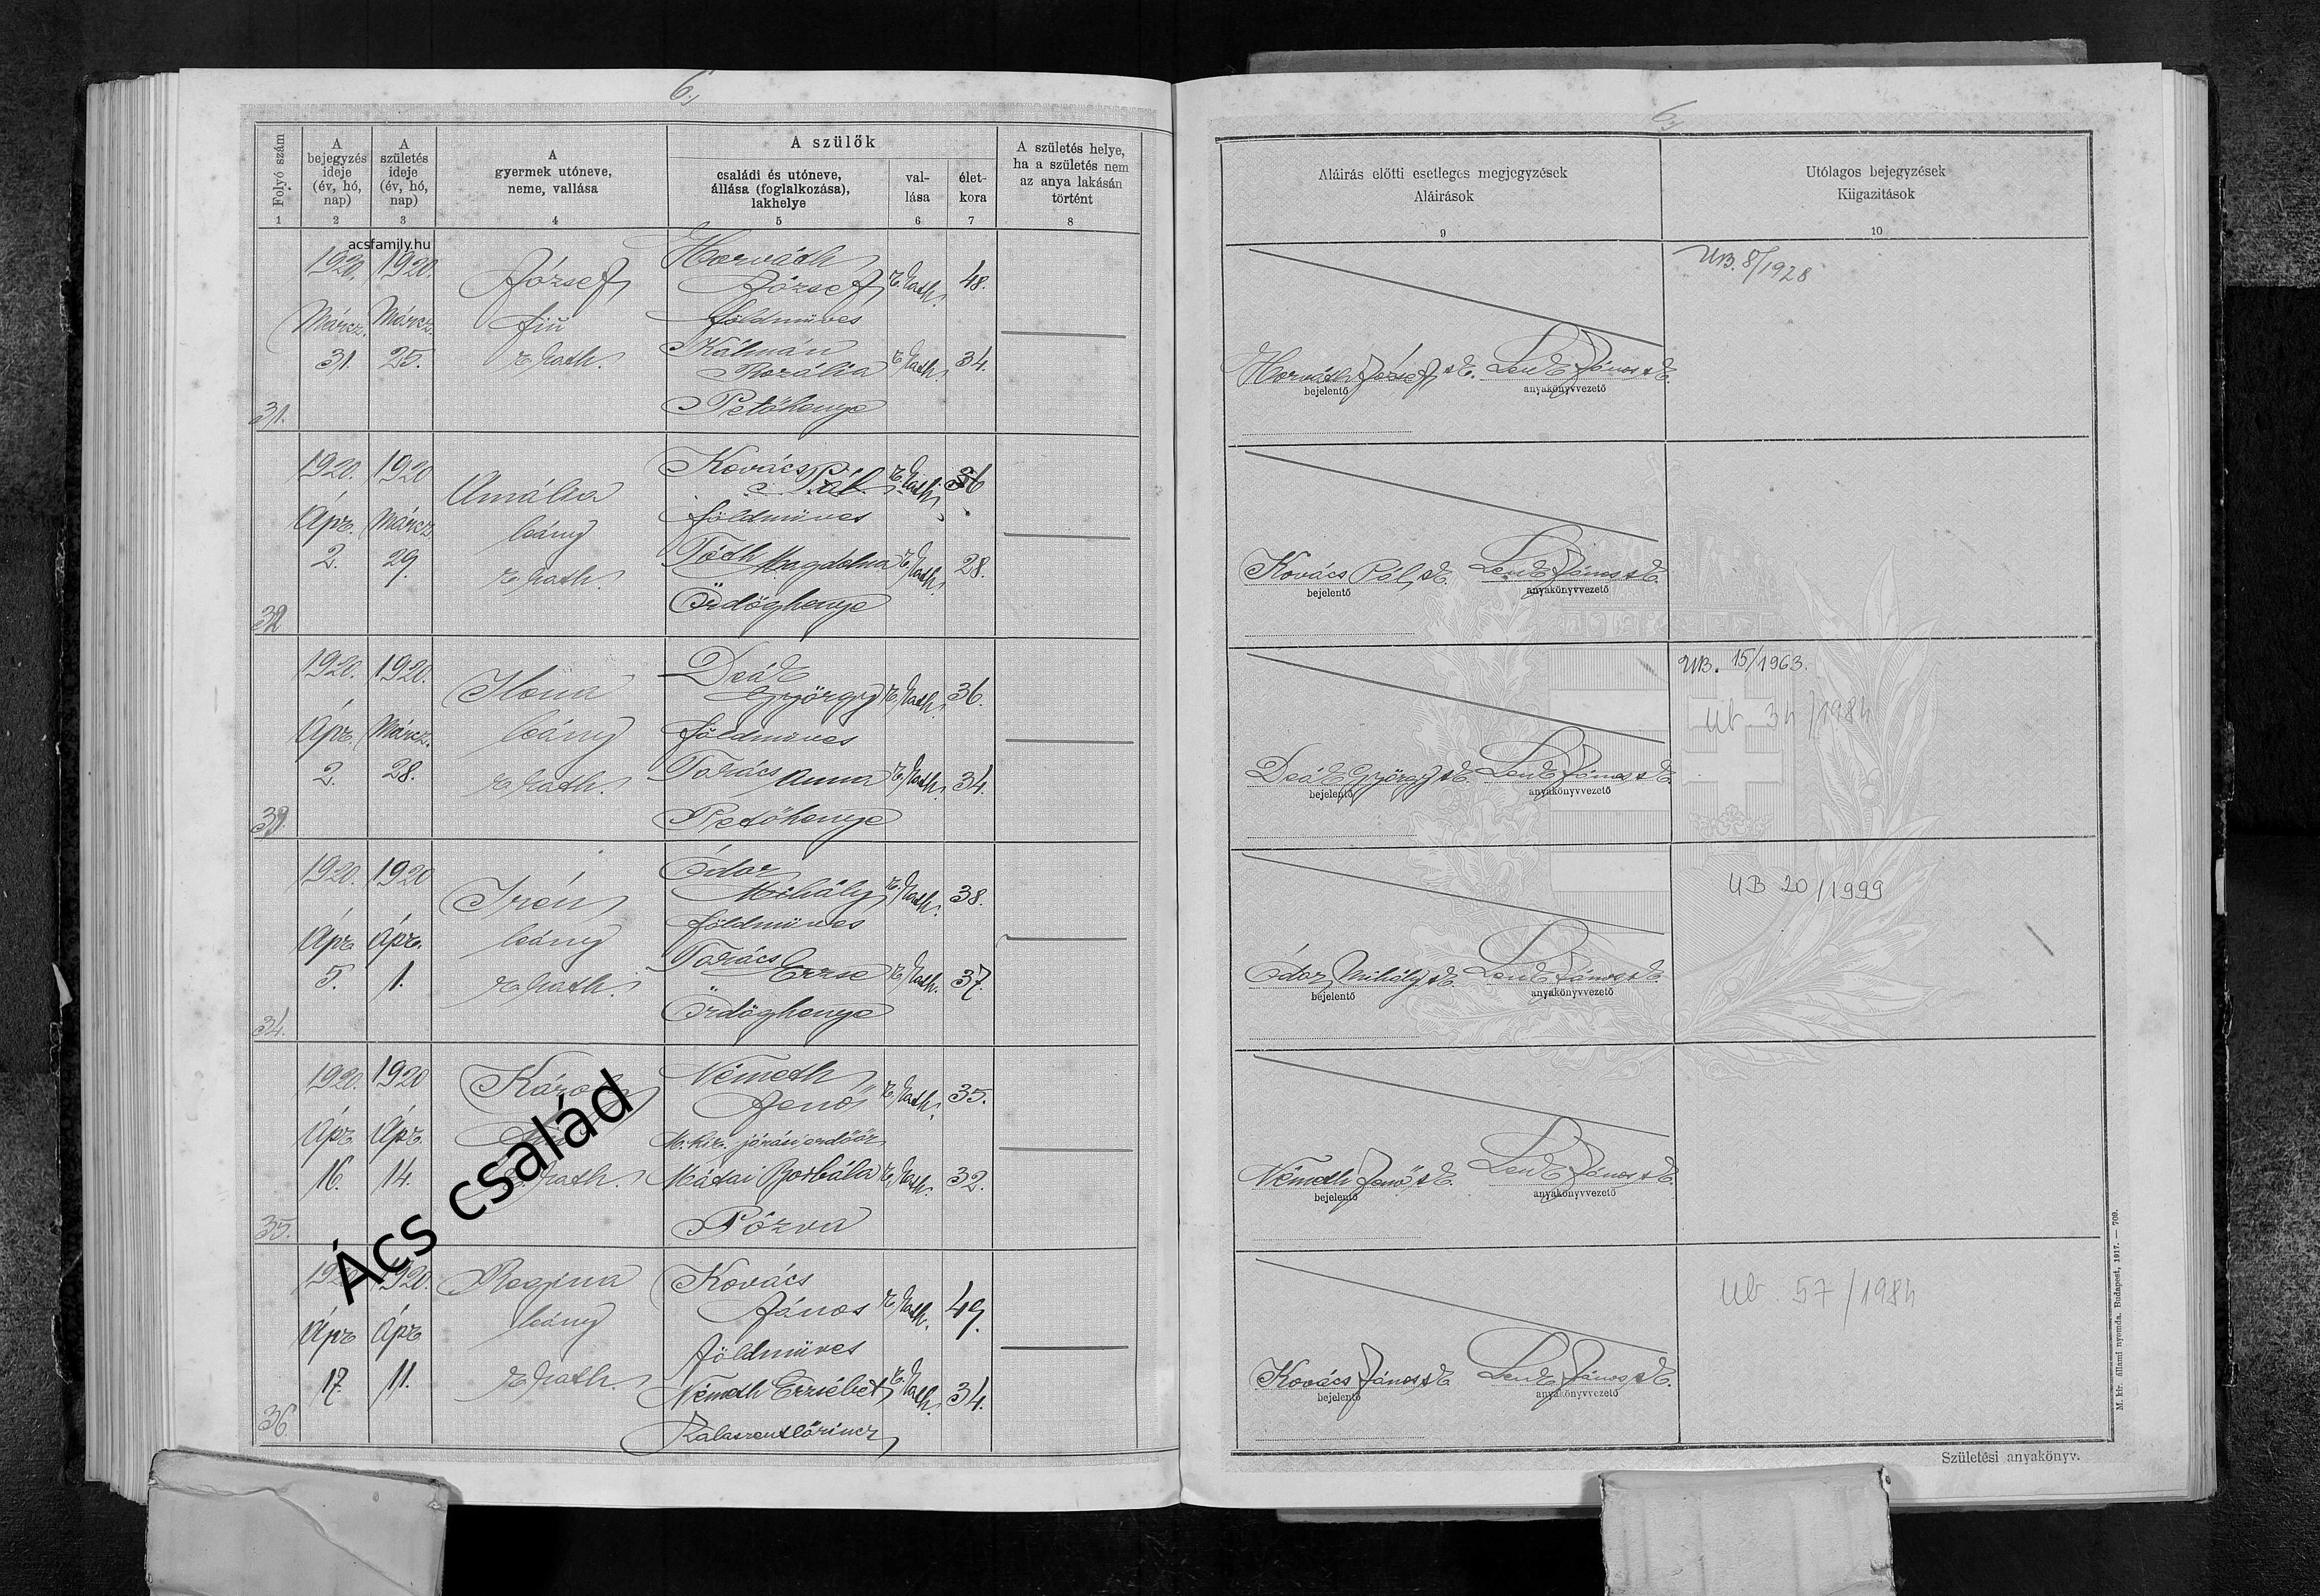 6.
Folyó szám
A bejegyzés ideje (év, hó, nap)
A születés ideje (év, hó, nap)
A gyermek utóneve, neme, vallása
A szülők
családi és utóneve, állása (foglalkozása), lakhelye
val-lása
élet-kora
A születés helye, ha a születés nem az anya lakásán történt
1 2 3 4 5 6 7 8
acsfamily.hu
1920. 1920. József Horváth József r. kath. 48.
Márcz. Márcz. fiú földmüves
31. 25. r. kath. Kálmán Rozália r. kath. 34.
31. Petőhenye
1920. 1920 Amália Kovács Pál r. kath. 36
Ápr. Márcz. leány földmüves
2. 29. r. kath. Tóth Magdolna r. kath. 28.
32 Ördöghenye
1920. 1920. Ilona Deák György r. kath. 36.
Ápr. Márcz. leány földmüves
2. 28. r. kath. Takács Anna r. kath. 34.
33. Petőhenye
1920. 1920 Irén Ódor Mihály r. kath. 38.
Ápr. Ápr. leány földmüves
5. 1. r. kath. Takács Erzse r. kath. 37.
34. Ördöghenye
1920. 1920 Károly Németh Jenő r. kath. 35.
Ápr. Ápr. fiú M. kir. járási erdőőr
16. 14. r. kath. Mátai Borbála r. kath. 32.
35. Pózva
Ács család
1920. 1920. Regina Kovács János r. kath. 49.
Ápr. Ápr. leány földmüves
17. 11. r. kath. Németh Erzsébet r. kath. 34.
36. Kalaszentlőrincz
6.
Aláírás előtti esetleges megjegyzések
Aláírások
9
Utólagos bejegyzések
Kiigazítások
10
UB. 8/1928
Horváth József sk. Lenk János sk.
bejelentő anyakönyvvezető
Kovács Pál, sk. Lenk János sk.
bejelentő anyakönyvvezető
UB. 15/1963.
Ub. 34/1984
Deák György sk. Lenk János sk.
bejelentő anyakönyvvezető
UB 20/1999
Ódor Mihály sk. Lenk János sk.
bejelentő anyakönyvvezető
Németh Jenő sk. Lenk János sk.
bejelentő anyakönyvvezető
Ub. 57/1984
Kovács János sk. Lenk János sk.
bejelentő anyakönyvvezető
M. kir. állami nyomda. Budapest, 1917. — 709.
Születési anyakönyv.